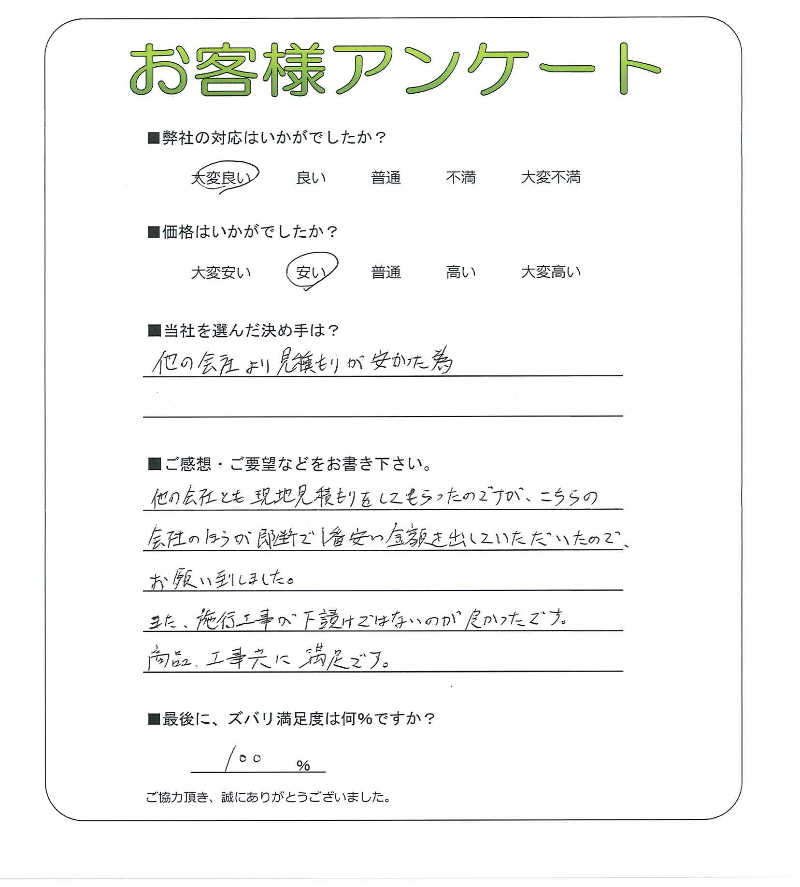 お客様アンケート
■弊社の対応はいかがでしたか？
大変良い 良い 普通 不満 大変不満
■価格はいかがでしたか？
大変安い 安い 普通 高い 大変高い
■当社を選んだ決め手は？
他の会社より見積もりが安かった為
■ご感想・ご要望などをお書き下さい。
他の会社とも現地見積もりをしてもらったのですが、こちらの
会社のほうが即断で1番安い金額を出していただいたので、
お願い到しました。
また、施行工事が下請けではないのが良かったです。
商品、工事共に満足です。
■最後に、ズバリ満足度は何%ですか？
100 %
ご協力頂き、誠にありがとうございました。